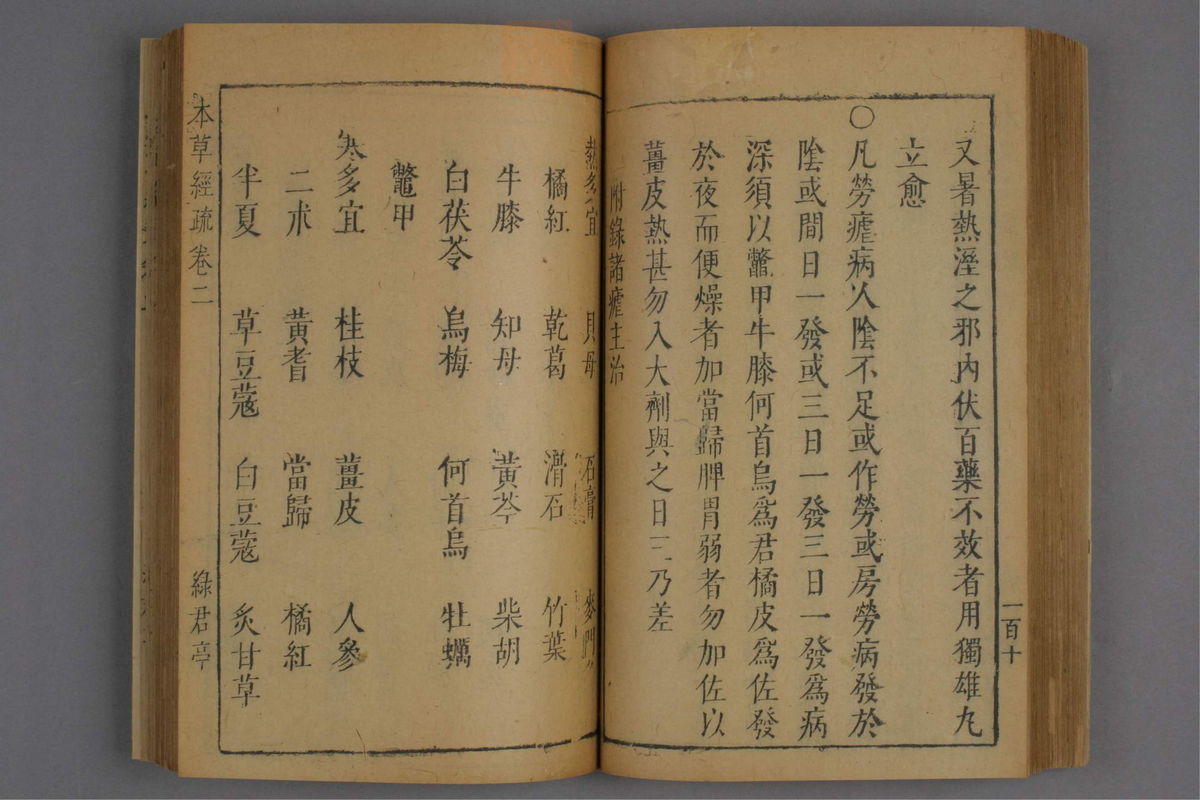 又暑熱溼之邪内伏百藥不效者用獨雄丸
立愈
〇凡勞瘧病人陰不足或作勞或房勞病發於
陰或間日一發或三日一發三日一發爲病
深須以鼈甲牛膝何首烏爲君橘皮爲佐發
於夜而便燥者加當歸脾胃弱者勿加佐以
薑皮熱甚勿入大劑與之日二乃差
附錄諸瘧主治
一百十
熱多宜 貝母 石膏 麥門
橘紅 乾葛 滑石 竹葉
牛膝 知母 黃芩 柴胡
白茯苓 烏梅 何首烏 牡蠣
鼈甲
寒多宜 桂枝 薑皮 人參
二朮 黃耆 當歸 橘紅
半夏 草豆蔻 白豆蔻 炙甘草
本草經疏卷二 綠君亭